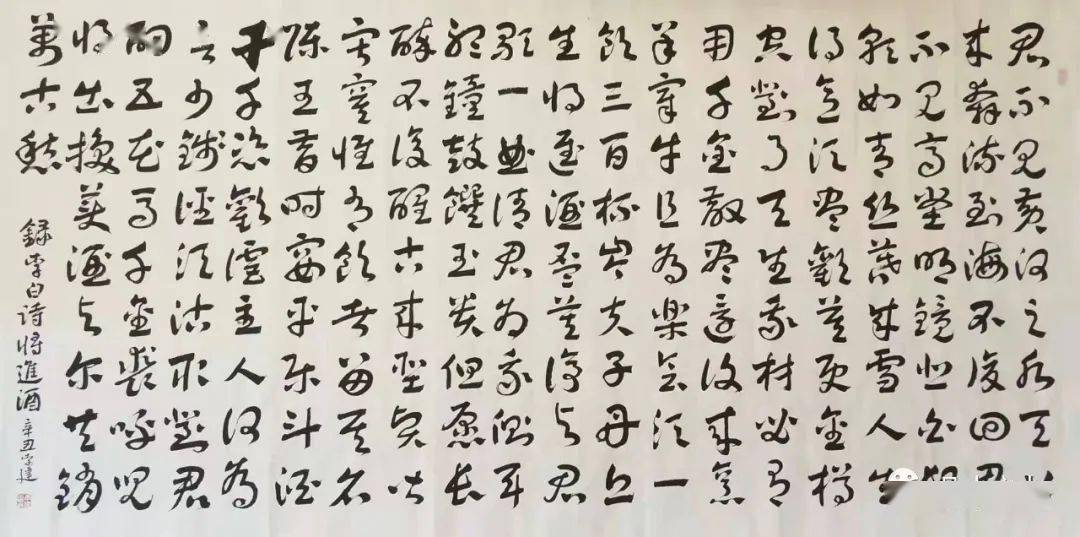 君不見黄河之水天
來奔流到海不復回君
不見高堂明鏡悲白
朝如青丝暮成雪人生
得意須盡歡莫使金樽
空對月天生我材必有
用千金散盡還復來烹
羊宰牛且為樂会須一
飲三百杯岑夫子丹丘
生将進酒杯莫停与君
歌一曲請君為我側耳
聽鐘鼓饌玉貴但愿長
醉不復醒古來聖賢皆
寂寞惟有飲者留其名
陳王昔时宴平樂斗酒
十千恣歡谑主人何為
言少錢徑須沽取對君
酌五花馬千金裘呼兒
将出換美酒与尔共銷
萬古愁
録李白诗将進酒辛丑